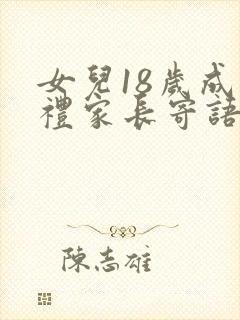 女兒18歲成
禮家長寄語
陳志雄